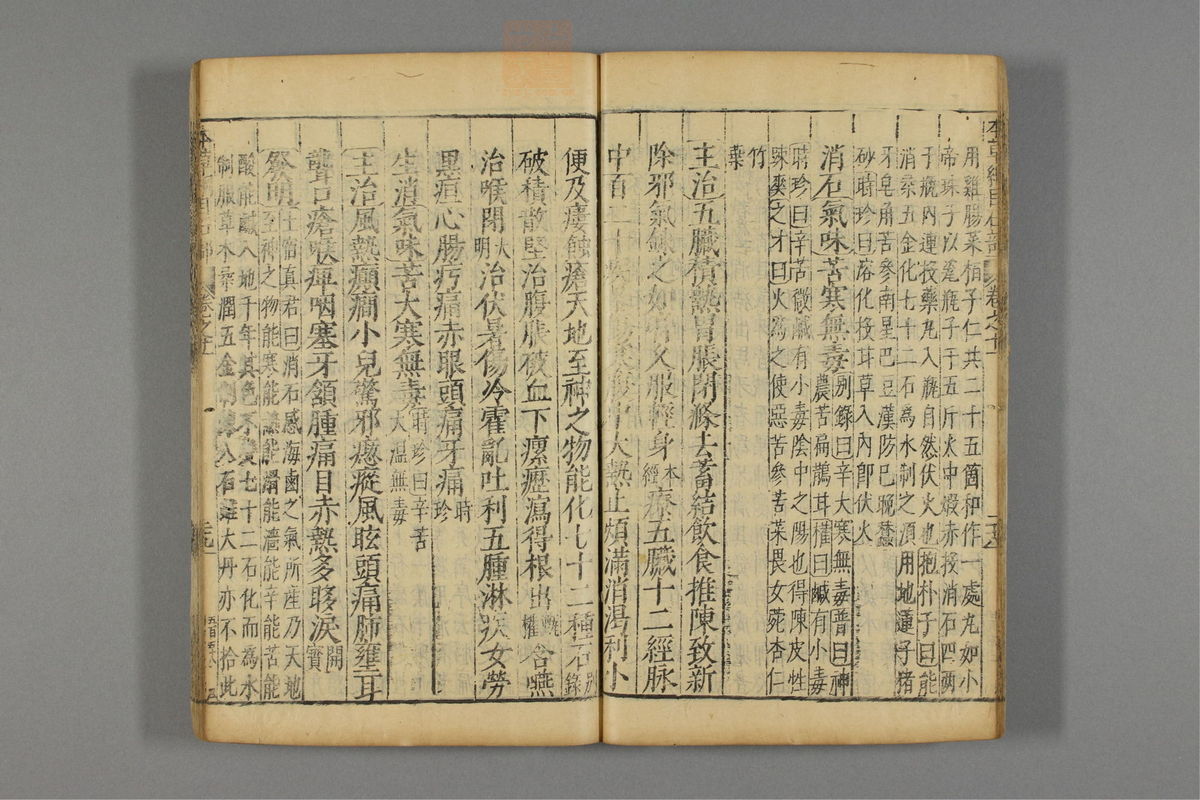 用雞腸菜柏子仁共二十五箇和作一處丸如小
帝珠子以瓷瓶子于五斤火中煅赤投消石四兩
于瓶內連投藥丸入瓶自然伏火也抱朴子曰能
消柔五金化七十二石為水制之須用地蓮子猪
牙皂角苦參南星巴豆漢防巳晚蠶
砂時珍曰溶化投甘草入內即伏火
消石氣味苦寒無毒別錄曰辛大寒無毒普曰神
農苦扁鵲甘權曰鹹有小毒
時珍曰辛苦微鹹有小毒陰中之陽也得陳皮性
疎爽之才曰火為之使惡苦參苦菜畏女菀杏仁
竹
葉
主治五臟積熱胃脹閉滌去蓄結飲食推陳致新
除邪氣鍊之如膏久服輕身本經療五臟十二經脉
中百二十大熱止煩滿消渴利小
便及瘻蝕瘡天地至神之物能化七十二種石別錄
破積散堅治腹脹破血下瘰癧瀉得根出甄權含嚥
治喉閉大明治伏暑傷冷霍亂吐利五腫淋疾女勞
黑疸心腸疞痛赤眼頭痛牙痛時珍
生消氣味苦大寒無毒時珍曰辛苦
大溫無毒
主治風熱癲癇小兒驚邪瘛瘲風眩頭痛肺壅耳
聾口瘡喉痺咽塞牙頷腫痛目赤熱多眵淚開寶
發明土宿真君曰消石感海鹵之氣所產乃天地
至神之物能寒能熱能滑能濇能辛能苦能
酸能鹹入地千年其色不變七十二石化而為水
制服草木柔潤五金制煉八石雖大丹亦不捨此